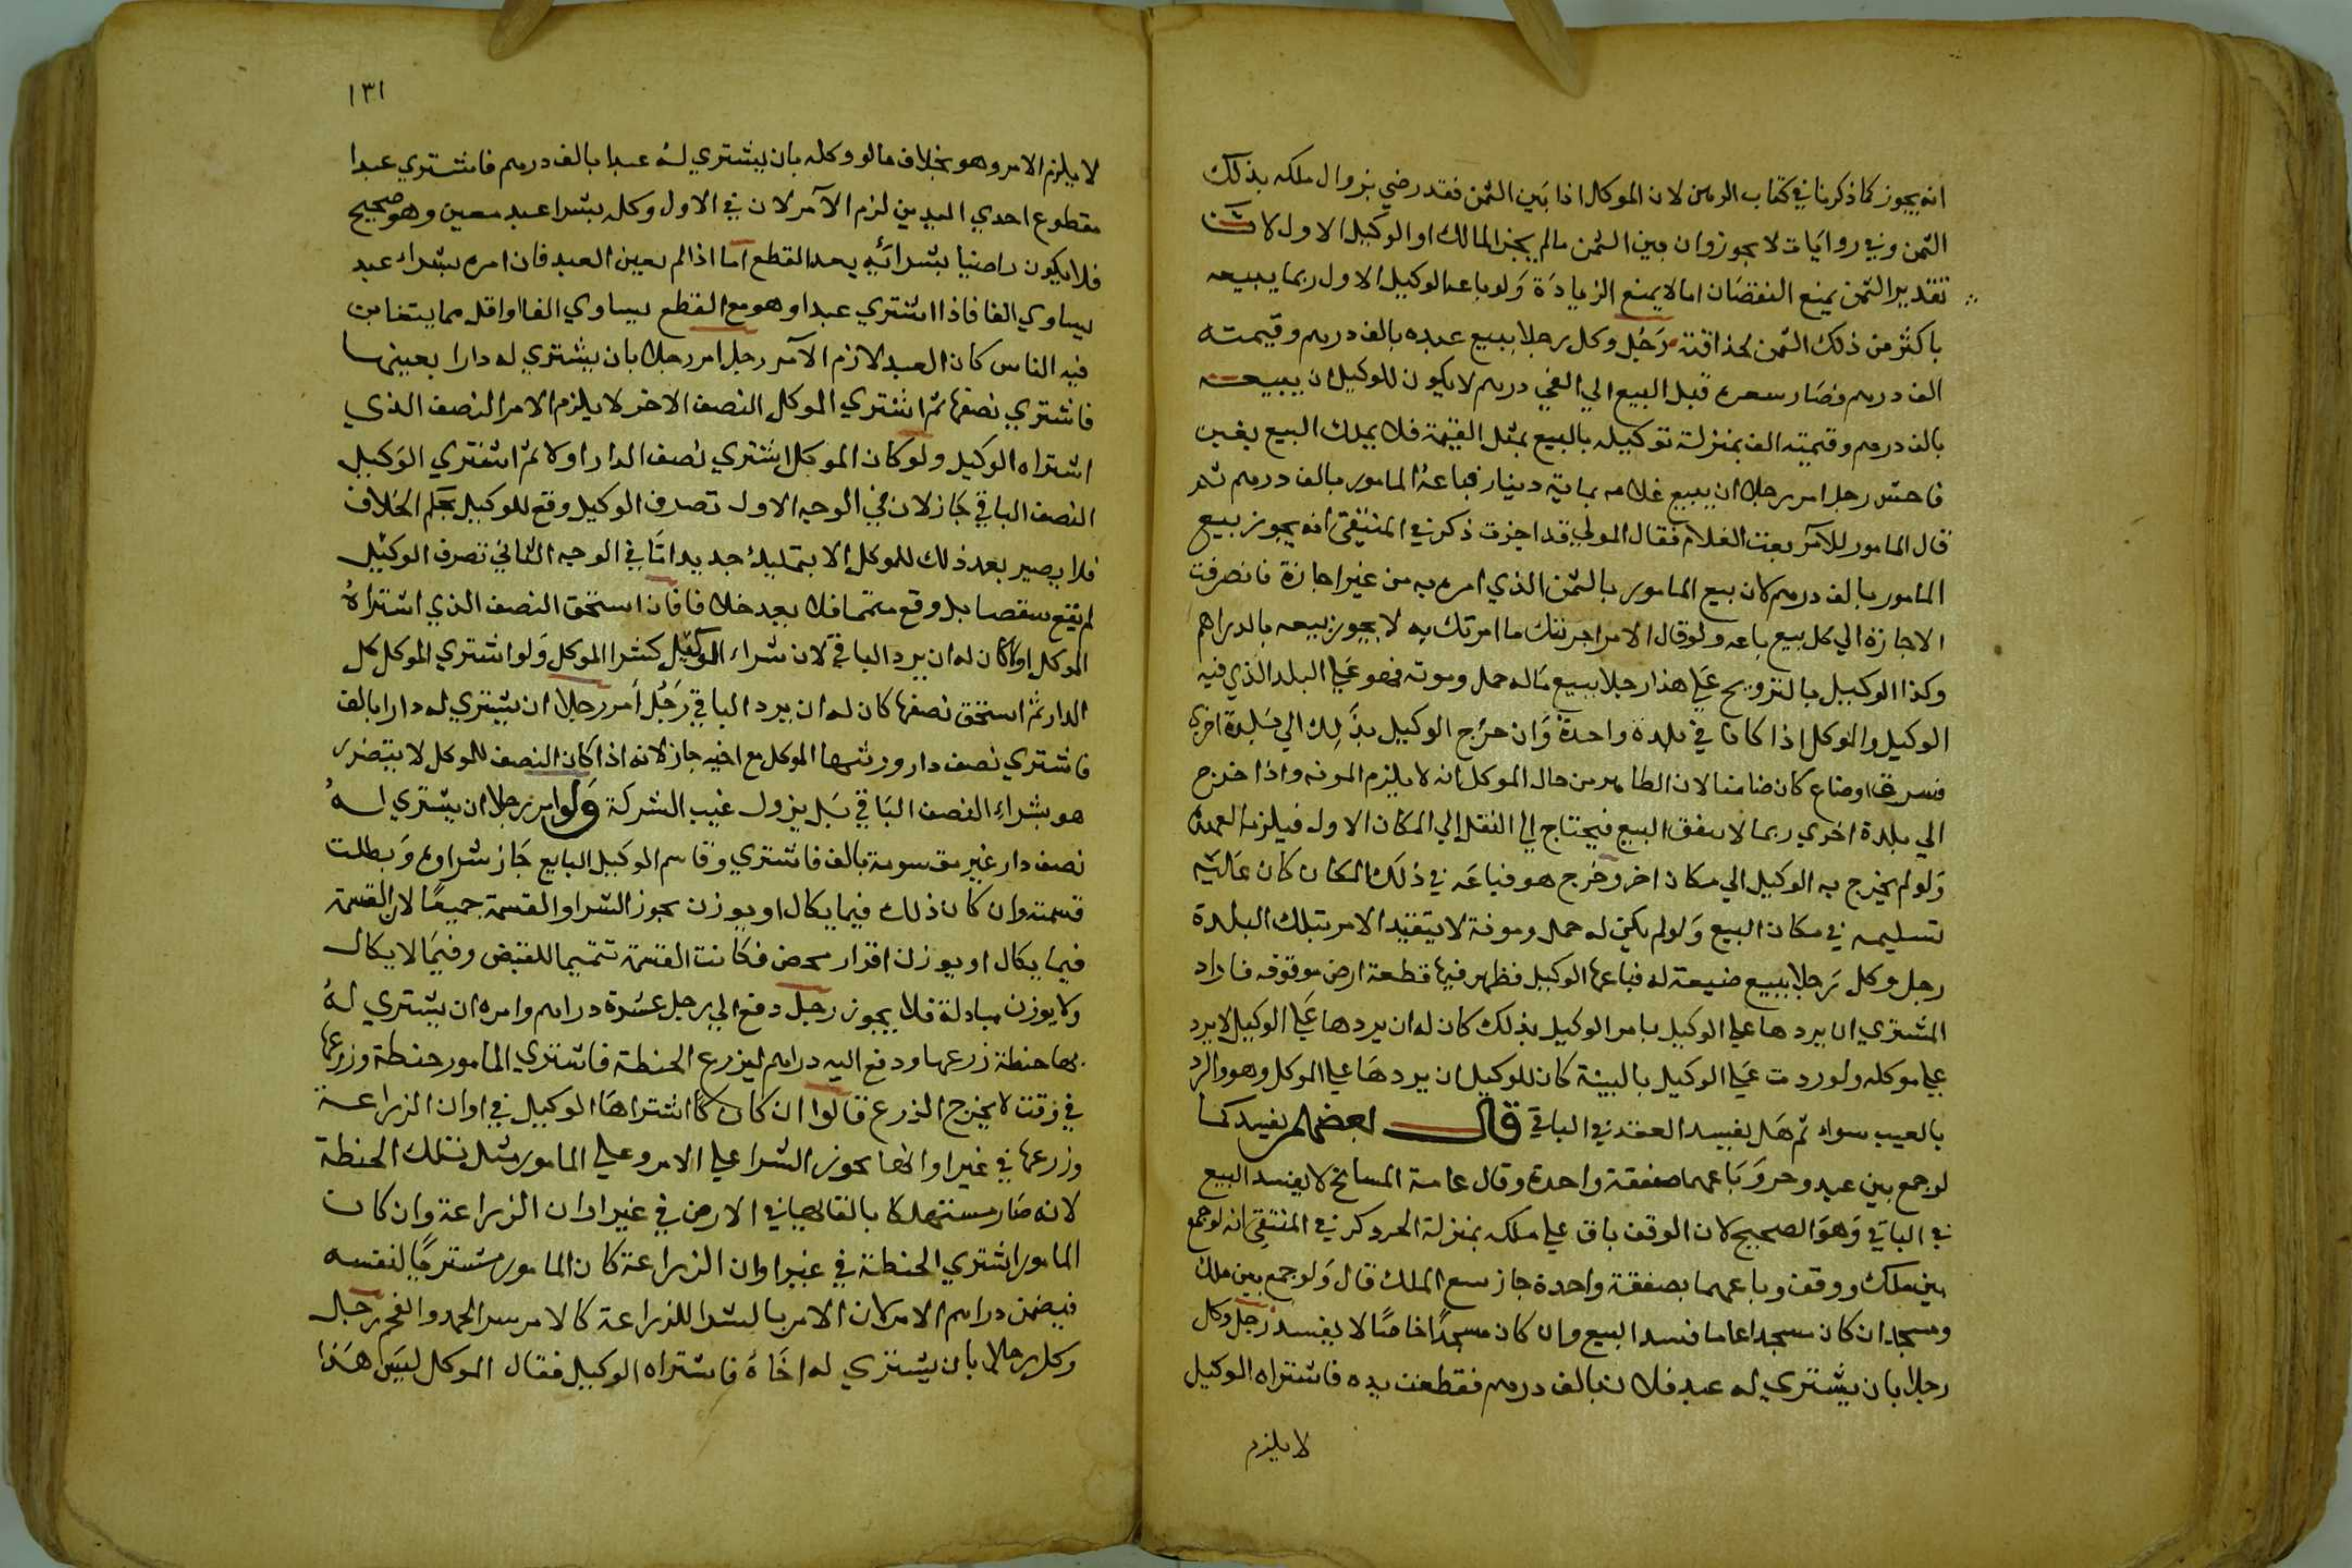 انه يجوز كما ذكرنا في كتاب الرهن لان الموكل اذا بين الثمن فقد رضي بزوال ملكه بذلك
الثمن وفي روايات لا يجوز وان بين الثمن ما لم يجز المالك او الوكيل الاول لان
تقدير الثمن يمنع النقصان اما لا يمنع الزيادة ولو باعه الوكيل الاول ربما يبيعه
باكثر من ذلك الثمن لحذاقته رجل وكل رجلا ببيع عبده بالف درهم وقيمته
الف درهم فصار سعره قبل البيع الي الفي درهم لا يكون للوكيل ان يبيعه
بالف درهم وقيمته الف بمنزلة توكيله بالبيع بمثل القيمة فلا يملك البيع بغبن
فاحش رجل امر رجلا ان يبيع غلامه بماية دينار فباعه المامور بالف درهم ثم
قال المامور للآمر بعت الغلام فقال المولي قد اجزت ذكر في المنتقي انه يجوز بيع
المامور بالف درهم لان بيع المامور بالثمن الذي امره به من غير اجازة فانصرفت
الاجازة الي كل بيع باعه ولو قال الامر اجزتك ما امرتك به لا يجوز بيعه بالدراهم
وكذا الوكيل بالتزويج علي هذا رجلا ببيع ماله حمل وموته فهو علي البلد الذي فيه
الوكيل والموكل اذا كانا في بلدة واحدة وان خرج الوكيل بذلك الي بلدة اخري
فسرق او ضاع كان ضامنا لان الظاهر من حال الموكل انه لا يلزم المونه واذا خرج
الي بلدة اخري ربما لا يتفق البيع فيحتاج الي النقل الي المكان الاول فيلزمه العهدة
ولو لم يخرج به الوكيل الي مكان اخر وخرج هو فباعه في ذلك المكان كان عليه
تسليمه في مكان البيع ولو لم يكن له حمل ومونة لا يتقيد الامر بتلك البلدة
رجل وكل رجلا ببيع ضيعة له فباعها الوكيل فظهر فيها قطعة ارض موقوفه فاراد
المشتري ان يردها علي الوكيل بامر الوكيل بذلك كان له ان يردها علي الوكيل لا يرد
علي موكله ولو ردت علي الوكيل بالبينة كان للوكيل ان يردها علي الموكل وهو والرد
بالعيب سواء ثم هل يفسد العقد في الباقي قال بعضهم يفسد كما
لو جمع بين عبد وحر وباعهما صفقة واحدة وقال عامة المشايخ لا يفسد البيع
في الباقي وهو الصحيح لان الوقف باق علي ملكه بمنزلة الحر ذكر في المنتقي انه لو جمع
بين ملك ووقف وباعهما بصفقة واحدة جاز بيع الملك قال ولو جمع بين ملك
ومسجد ان كان مسجدا عاما فسد البيع وان كان مسجدا خاصا لا يفسد رجل وكل
رجلا بان يشتري له عبد فلان بالف درهم فقطعت يده فاشتراه الوكيل
لا يلزم
١٣١
لا يلزم الامر وهو بخلاف ما لو وكله بان يشتري له عبدا بالف درهم فاشتري عبدا
مقطوع احدي اليدين لزم الآمر لان في الاول وكله بشرا عبد معين وهو صحيح
فلا يكون راضيا بشرائه بعد القطع اما اذا لم يعين العبد فان امره بشراء عبد
يساوي الفا فاذا اشتري عبدا وهو مع القطع يساوي الفا او اقل مما يتغابن
فيه الناس كان العبد لازم الآمر رجل امر رجلا بان يشتري له دارا بعينها
فاشتري نصفها ثم اشتري الموكل النصف الاخر لا يلزم الامر النصف الذي
اشتراه الوكيل ولو كان الموكل اشتري نصف الدار اولا ثم اشتري الوكيل
النصف الباقي جاز لان في الوجه الاول تصرف الوكيل وقع للوكيل بحكم الخلاف
فلا يصير بعد ذلك للموكل الا بتمليك جديد اما في الوجه الثاني تصرف الوكيل
لم يقع بنقصا بل وقع متمما فلا يعد خلافا فان استحق النصف الذي اشتراه
الموكل اولا كان له ان يرد الباقي لان شراء الوكيل كشرا الموكل ولو اشتري الموكل كل
الدار ثم استحق نصفها كان له ان يرد الباقي رجل امر رجلا ان يشتري له دارا بالف
فاشتري نصف دار ورثها الموكل مع اخيه جاز لانه اذا كان النصف للموكل لا يتضرر
هو بشراء النصف الباقي بل يزول عيب الشركة ولو امر رجلا ان يشتري له
نصف دار غير مقسومة بالف فاشتري وقاسم الوكيل البايع جاز شراوه وبطلت
قسمته وان كان ذلك فيما يكال او يوزن يجوز الشرا والقسمة جميعا لان القسمة
فيما يكال او يوزن افراز محض فكانت القسمة تتميما للقبض وفيما لا يكال
ولا يوزن مبادلة فلا يجوز رجل دفع الي رجل عشرة دراهم وامره ان يشتري له
بها حنطة زرعها ودفع اليه دراهم ليزرع الحنطة فاشتري المامور حنطة وزرعها
في وقت لا يخرج الزرع قالوا ان كان اشتراها الوكيل في اوان الزراعة
وزرعها في غير اوانها يجوز الشرا علي الامر وعلي المامور مثل تلك الحنطة
لانه صار مستهلكا بالقائها في الارض في غير اوان الزراعة وان كان
المامور اشتري الحنطة في غير اوان الزراعة كان المامور مشتريا لنفسه
فيضمن دراهم الامر لان الامر بالشرا للزراعة كالامر بشرا الجمد والفحم رجل
وكل رجلا بان يشتري له اخاه فاشتراه الوكيل فقال الموكل ليس هذا